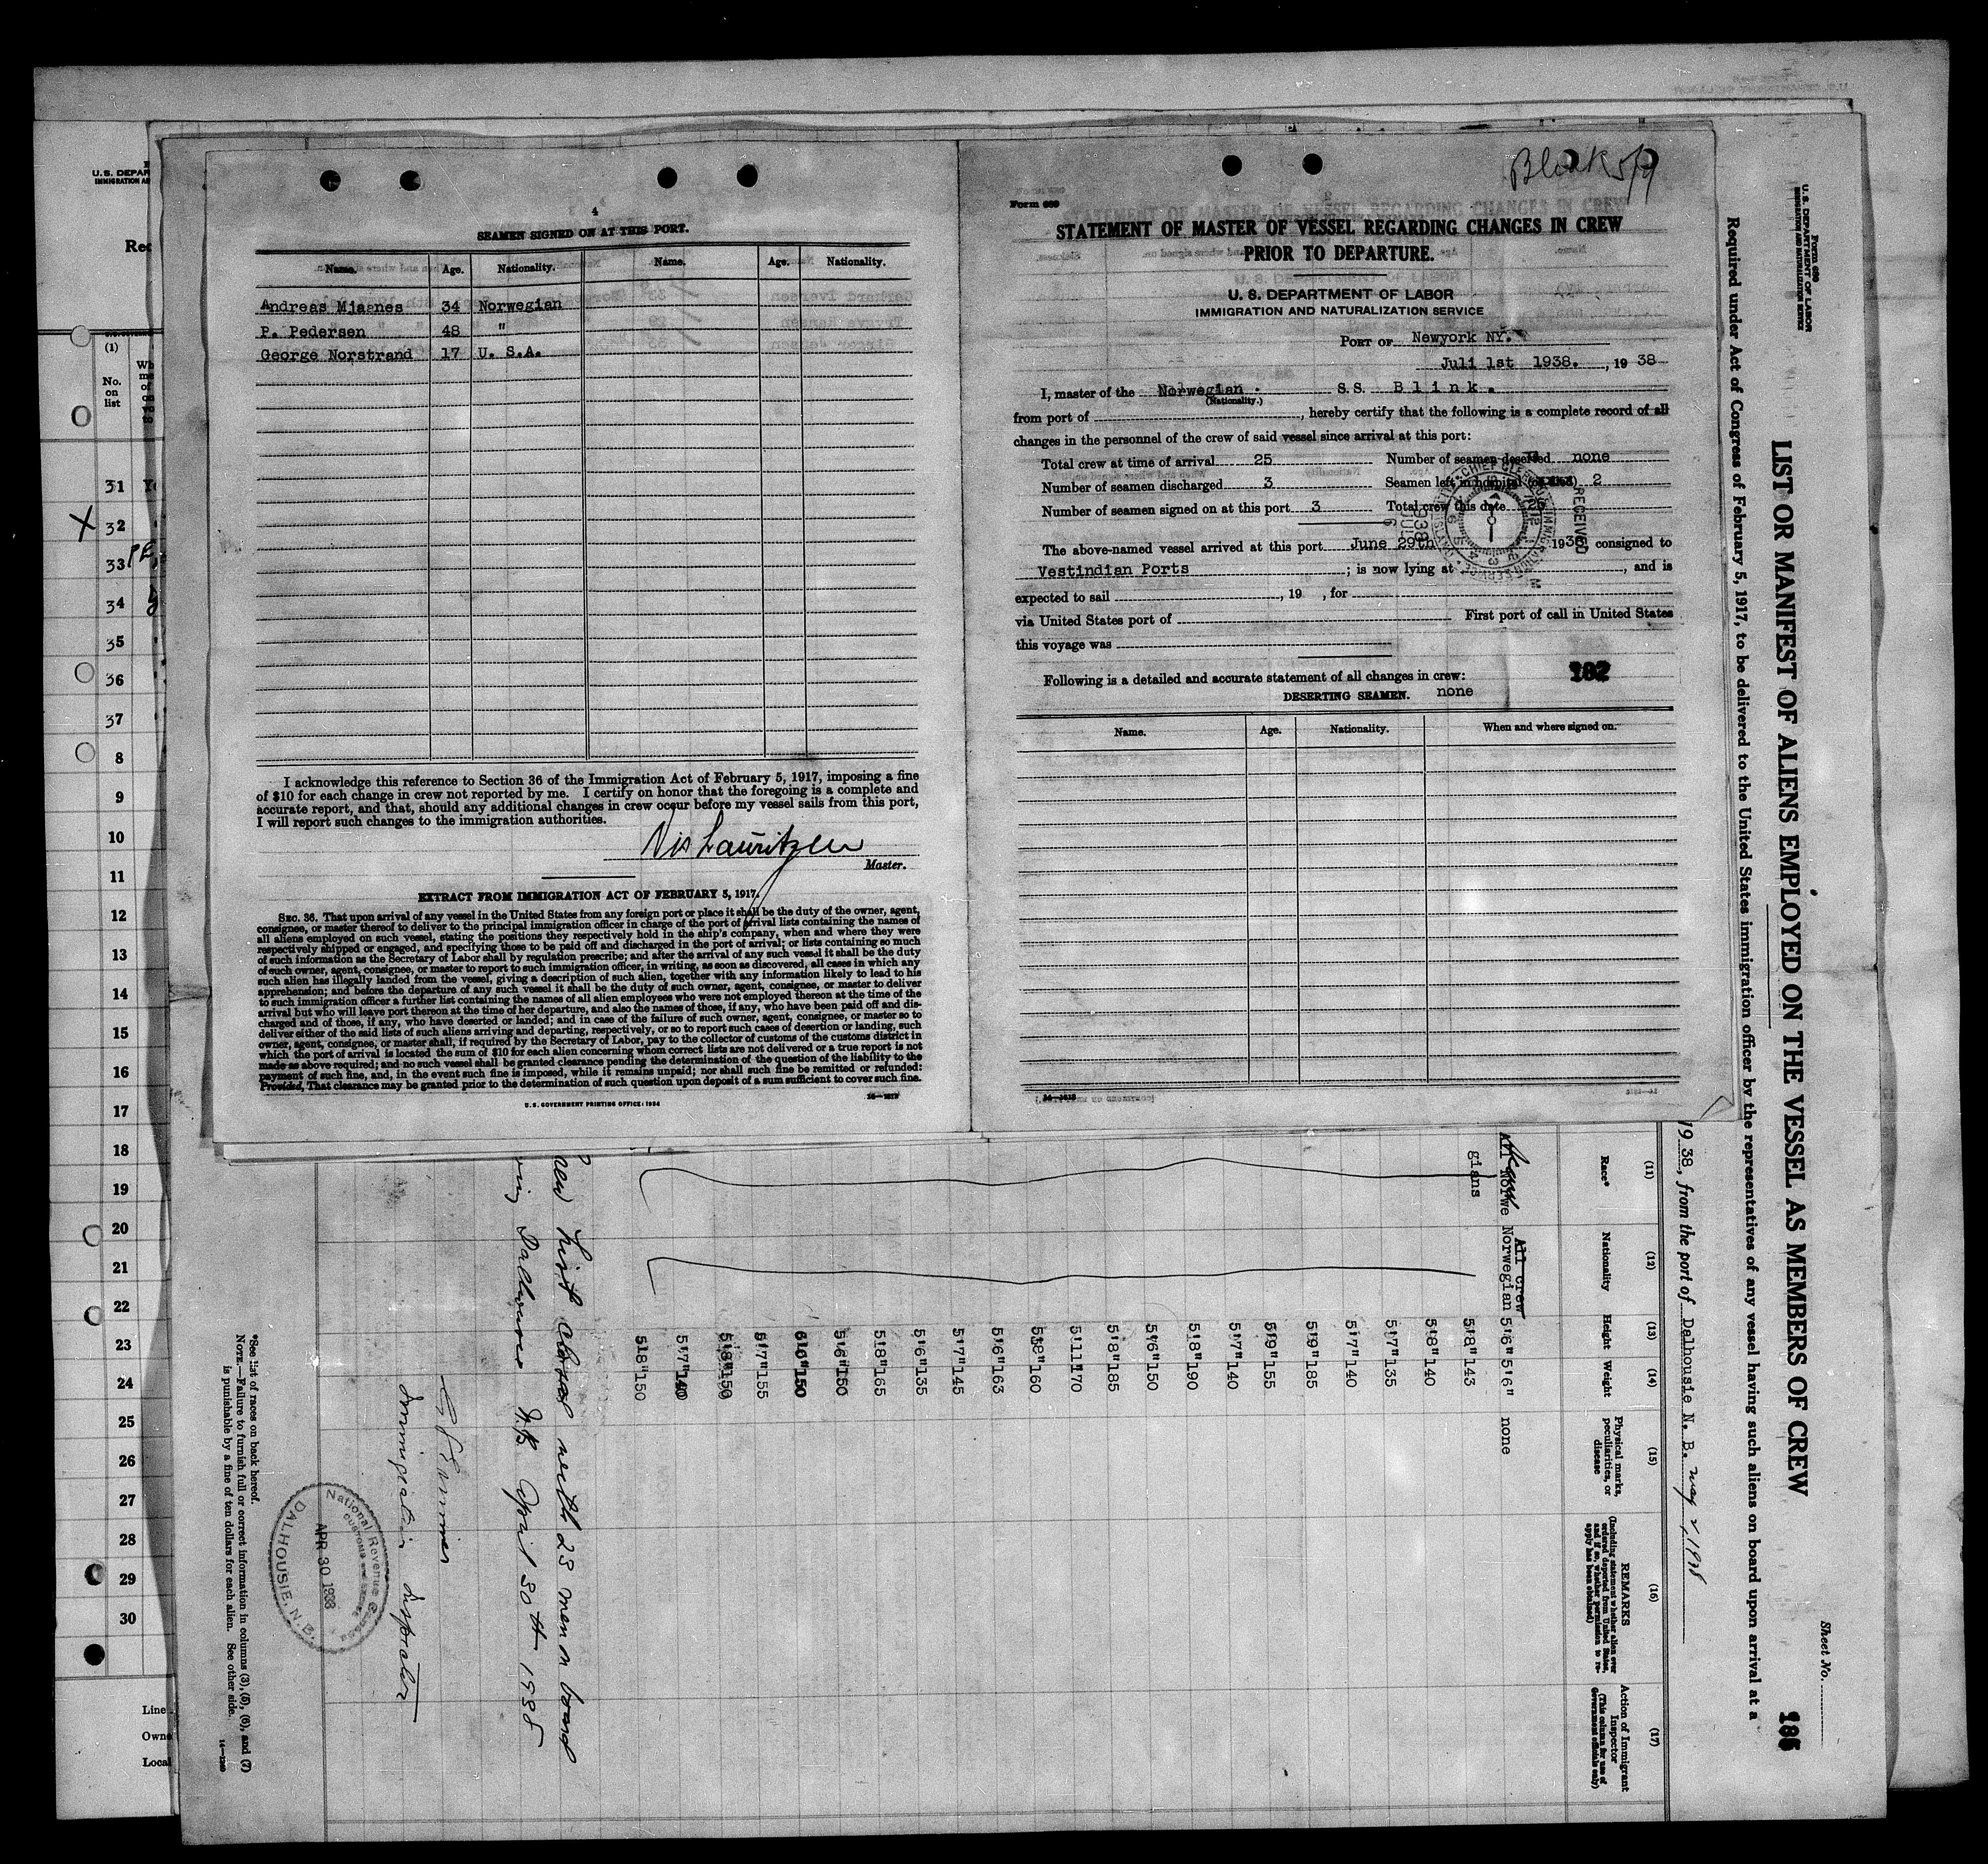 4
SEAMEN SIGNED ON AT THIS PORT.
Name. Age. Nationality. Name. Age. Nationality.
Andreas Mjasnes 34 Norwegian
P. Pedersen 48 "
George Norstrand 17 U. S.A.
I acknowledge this reference to Section 36 of the Immigration Act of February 5, 1917, imposing a fine
of $10 for each change in crew not reported by me. I certify on honor that the foregoing is a complete and
accurate report, and that, should any additional changes in crew occur before my vessel sails from this port,
I will report such changes to the immigration authorities.
Nis Lauritzen
Master.
EXTRACT FROM IMMIGRATION ACT OF FEBRUARY 5, 1917.
SEC. 36. That upon arrival of any vessel in the United States from any foreign port or place it shall be the duty of the owner, agent,
consignee, or master thereof to deliver to the principal immigration officer in charge of the port of arrival lists containing the names of
all aliens employed on such vessel, stating the positions they respectively hold in the ship's company, when and where they were
respectively shipped or engaged, and specifying those to be paid off and discharged in the port of arrival; or lists containing so much
of such information as the Secretary of Labor shall by regulation prescribe; and after the arrival of any such vessel it shall be the duty
of such owner, agent, consignee, or master to report to such immigration officer, in writing, as soon as discovered, all cases in which any
such alien has illegally landed from the vessel, giving a description of such alien, together with any information likely to lead to his
apprehension; and before the departure of any such vessel it shall be the duty of such owner, agent, consignee, or master to deliver
to such immigration officer a further list containing the names of all alien employees who were not employed thereon at the time of the
arrival but who will leave port thereon at the time of her departure, and also the names of those, if any, who have been paid off and dis-
charged and of those, if any, who have deserted or landed; and in case of the failure of such owner, agent, consignee, or master so to
deliver either of the said lists of such aliens arriving and departing, respectively, or so to report such cases of desertion or landing, such
owner, agent, consignee, or master shall, if required by the Secretary of Labor, pay to the collector of customs of the customs district in
which the port of arrival is located the sum of $10 for each alien concerning whom correct lists are not delivered or a true report is not
made as above required; and no such vessel shall be granted clearance pending the determination of the question of the liability to the
payment of such fine, and, in the event such fine is imposed, while it remains unpaid; nor shall such fine be remitted or refunded:
Provided, That clearance may be granted prior to the determination of such question upon deposit of a sum sufficient to cover such fine.
U. S. GOVERNMENT PRINTING OFFICE: 1934
Form 689
STATEMENT OF MASTER OF VESSEL REGARDING CHANGES IN CREW
PRIOR TO DEPARTURE.
U. S. DEPARTMENT OF LABOR
IMMIGRATION AND NATURALIZATION SERVICE
PORT OF Newyork NY.
Juli 1st 1938. , 19 38
I, master of the Norwegian S.S. Blink.
(Nationality.)
from port of , hereby certify that the following is a complete record of all
changes in the personnel of the crew of said vessel since arrival at this port:
Total crew at time of arrival 25 Number of seamen deserted none
Number of seamen discharged 3 Seamen left in hospital 2
Number of seamen signed on at this port 3 Total crew this date
The above-named vessel arrived at this port June 29th 193 consigned to
Vestindian Ports ; is now lying at , and is
expected to sail , 19 , for
via United States port of First port of call in United States
this voyage was
RECEIVED
Following is a detailed and accurate statement of all changes in crew:
182
DESERTING SEAMEN. none
Name. Age. Nationality. When and where signed on.
LIST OR MANIFEST OF ALIENS EMPLOYED ON THE VESSEL AS MEMBERS OF CREW
Form 680
U. S. DEPARTMENT OF LABOR
IMMIGRATION AND NATURALIZATION SERVICE
Sheet No.
Required under Act of Congress of February 5, 1917, to be delivered to the United States immigration officer by the representatives of any vessel having such aliens on board upon arrival at a
19 38, from the port of Dalhousie N. B. May 2, 1938
(11) (12) (13) (14) (15) (16) (17)
Race* Nationality Height Weight
Physical marks, peculiarities, or disease
REMARKS
(Including statement whether alien ever ordered deported from United States, and if so, whether permission to re-apply has been obtained)
Action of Immigrant Inspector
(This column for use of Government officials only)
All Norwe Norwegian 5'6" 5'6" none
gians
All crew
5'8" 143
5'8" 140
5'7" 135
5'7" 140
5'9" 185
5'9" 155
5'7" 140
5'8" 190
5'6" 150
5'8" 185
5'11" 170
5'8" 160
5'6" 163
5'7" 145
5'6" 135
5'8" 165
5'6" 150
150
5'7" 155
5'8" 150
5'7" 140
5'8" 150
crew list closed with 23 men on board
Dalhousie N.B. April 30th 1938
Immigration Inspector
National Revenue
APR 30 1938
DALHOUSIE, N. B.
*See list of races on back hereof.
NOTE.—Failure to furnish full or correct information in columns (3), (5), (6), and (7)
is punishable by a fine of ten dollars for each alien. See other side.
U. S. DEPAR
IMMIGRATION AN
(1)
No.
on
list
31
32
33
34
35
36
37
8
9
10
11
12
13
14
15
16
17
18
19
20
21
22
23
24
25
26
27
28
29
30
Line
Owne
Local